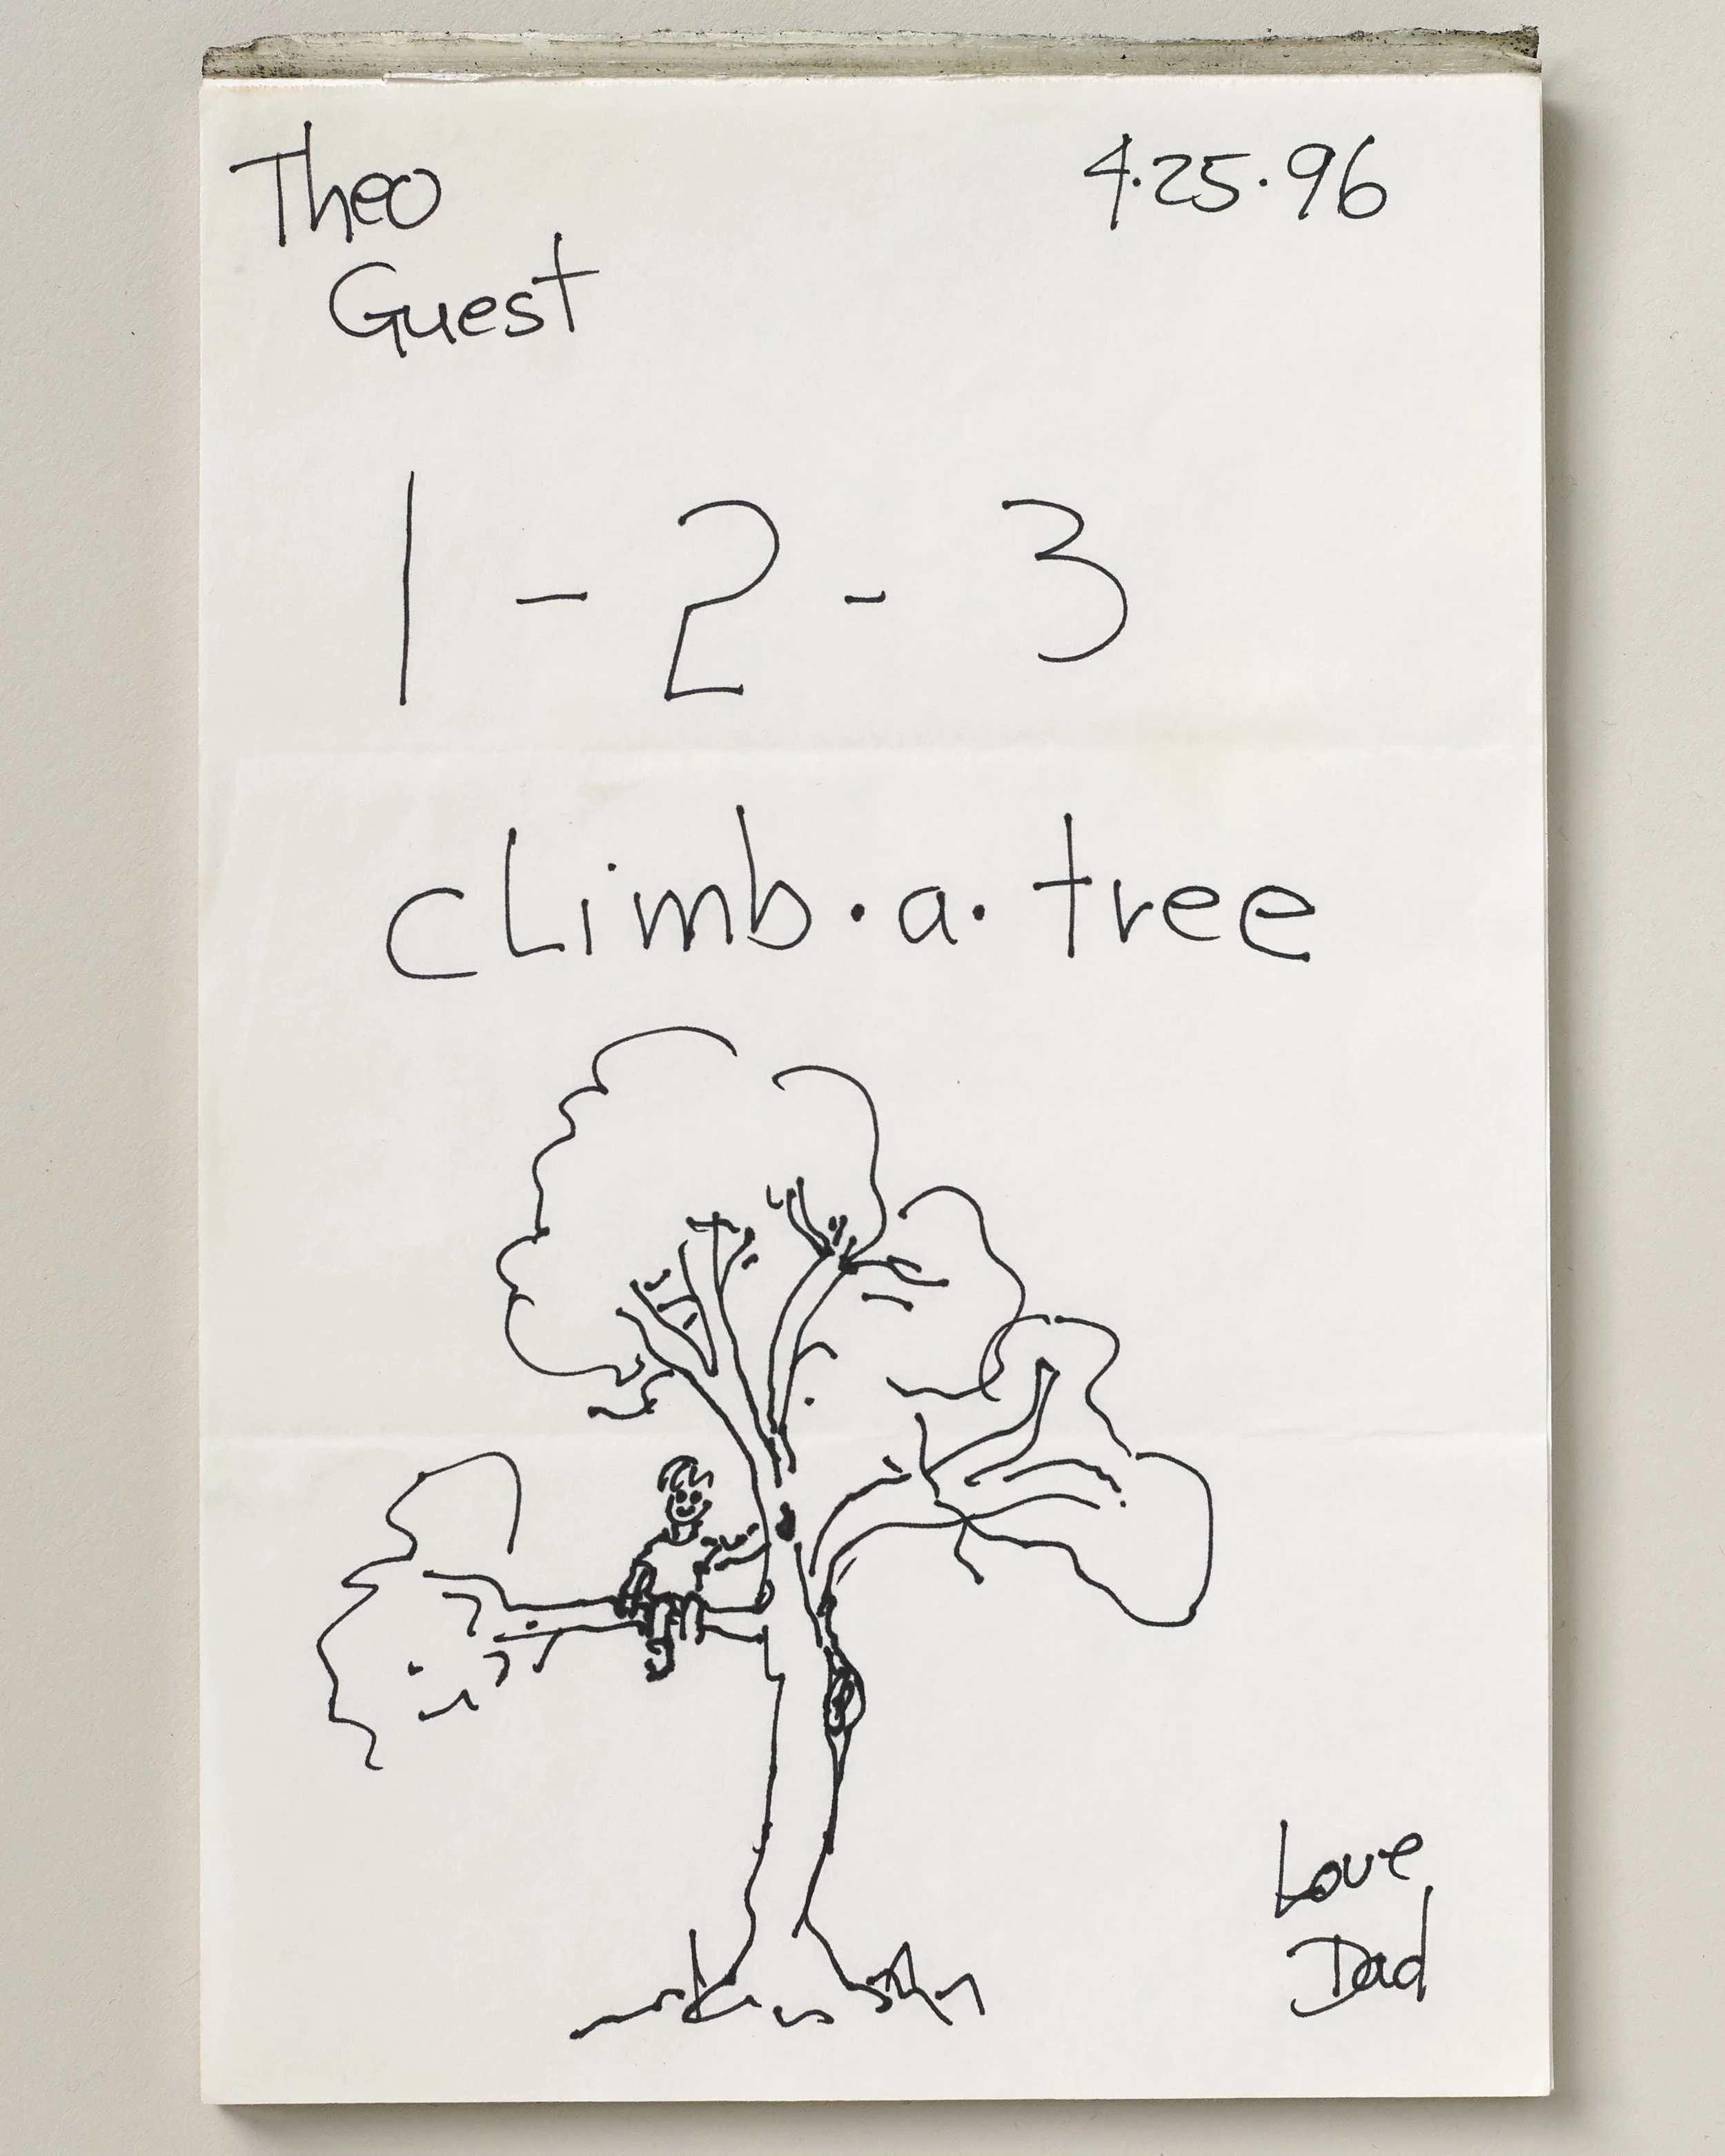 Theo
Guest
4.25.96
1-2-3
climb.a.tree
Love
Dad